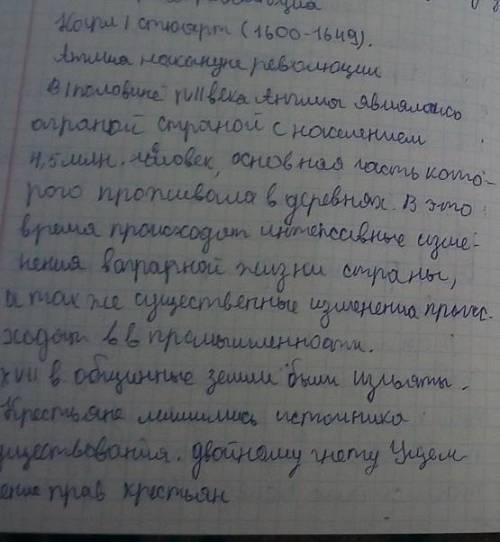 Карл I Стюарт (1600-1649).
Англия накануне революции
В I половине XVII века Англия являлась
аграной страной с населением
4,5 млн. человек, основная часть кото-
рого проживала в деревнях. В это
время происходят интенсивные изме-
нения в аграрной жизни страны,
а так же существенные изменение проис-
ходят в в промышленности.
XVII в общинные земли были изъяты.
Крестьяне лишились источника
существования. двойному гнёту Ущем
ение прав крестьян